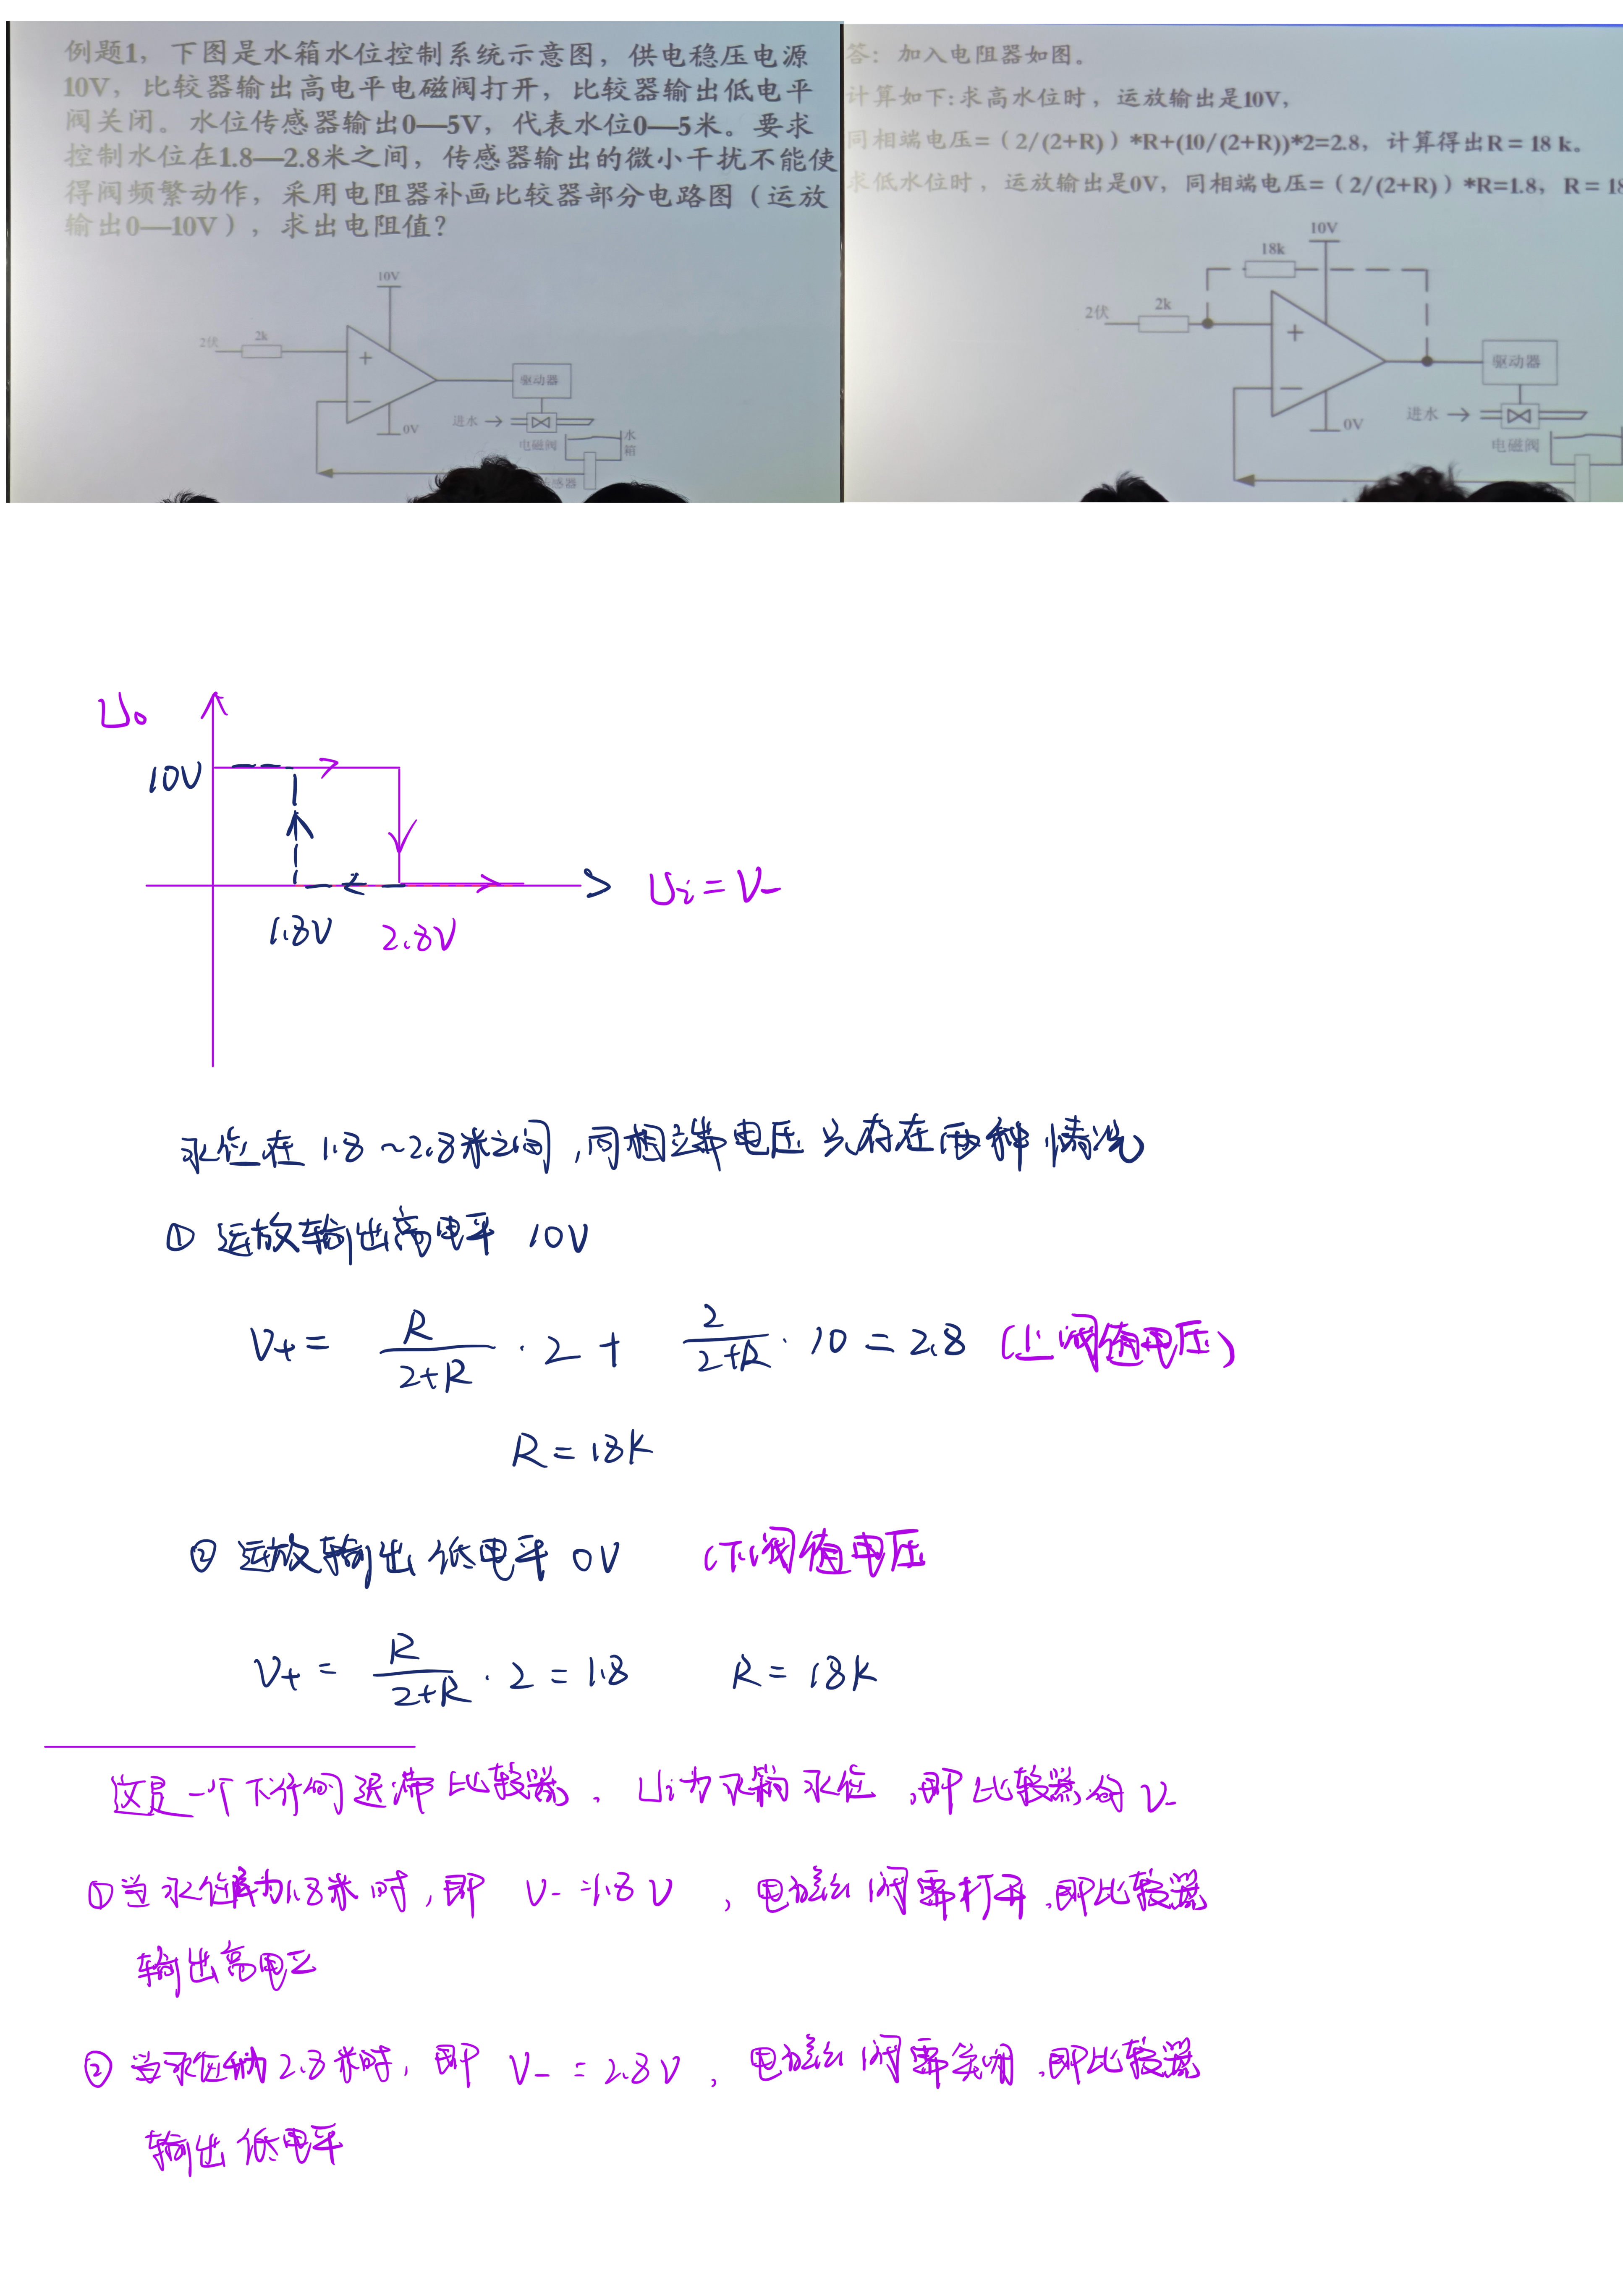 例题1，下图是水箱水位控制系统示意图，供电稳压电源
10V，比较器输出高电平电磁阀打开，比较器输出低电平
阀关闭。水位传感器输出0—5V，代表水位0—5米。要求
控制水位在1.8—2.8米之间，传感器输出的微小干扰不能使
得阀频繁动作，采用电阻器补画比较器部分电路图（运放
输出0—10V），求出电阻值？
10V
2伏
2k
+
−
0V
驱动器
进水
电磁阀
水
箱
感器
答：加入电阻器如图。
计算如下:求高水位时，运放输出是10V，
同相端电压=（2/(2+R)）*R+(10/(2+R))*2=2.8，计算得出R = 18 k。
求低水位时，运放输出是0V，同相端电压=（2/(2+R)）*R=1.8，R = 18
10V
18k
2伏
2k
+
−
0V
驱动器
进水
电磁阀
U₀
10V
1.8V
2.8V
Ui = V-
水位在 1.8 ~ 2.8米之间，同相端电压只存在两种情况
① 运放输出高电平 10V
V+ = R/(2+R) · 2 + 2/(2+R) · 10 = 2.8 (上阀值电压)
R = 18K
② 运放输出低电平 0V (下阀值电压
V+ = R/(2+R) · 2 = 1.8 R = 18K
这是一个下行的迟滞比较器，Ui为水箱水位，即比较器的 V-
①当水位为1.8米时，即 V- = 1.8V，电磁阀需打开，即比较器
输出高电平
② 当水位为2.8米时，即 V- = 2.8V，电磁阀需关闭，即比较器
输出低电平